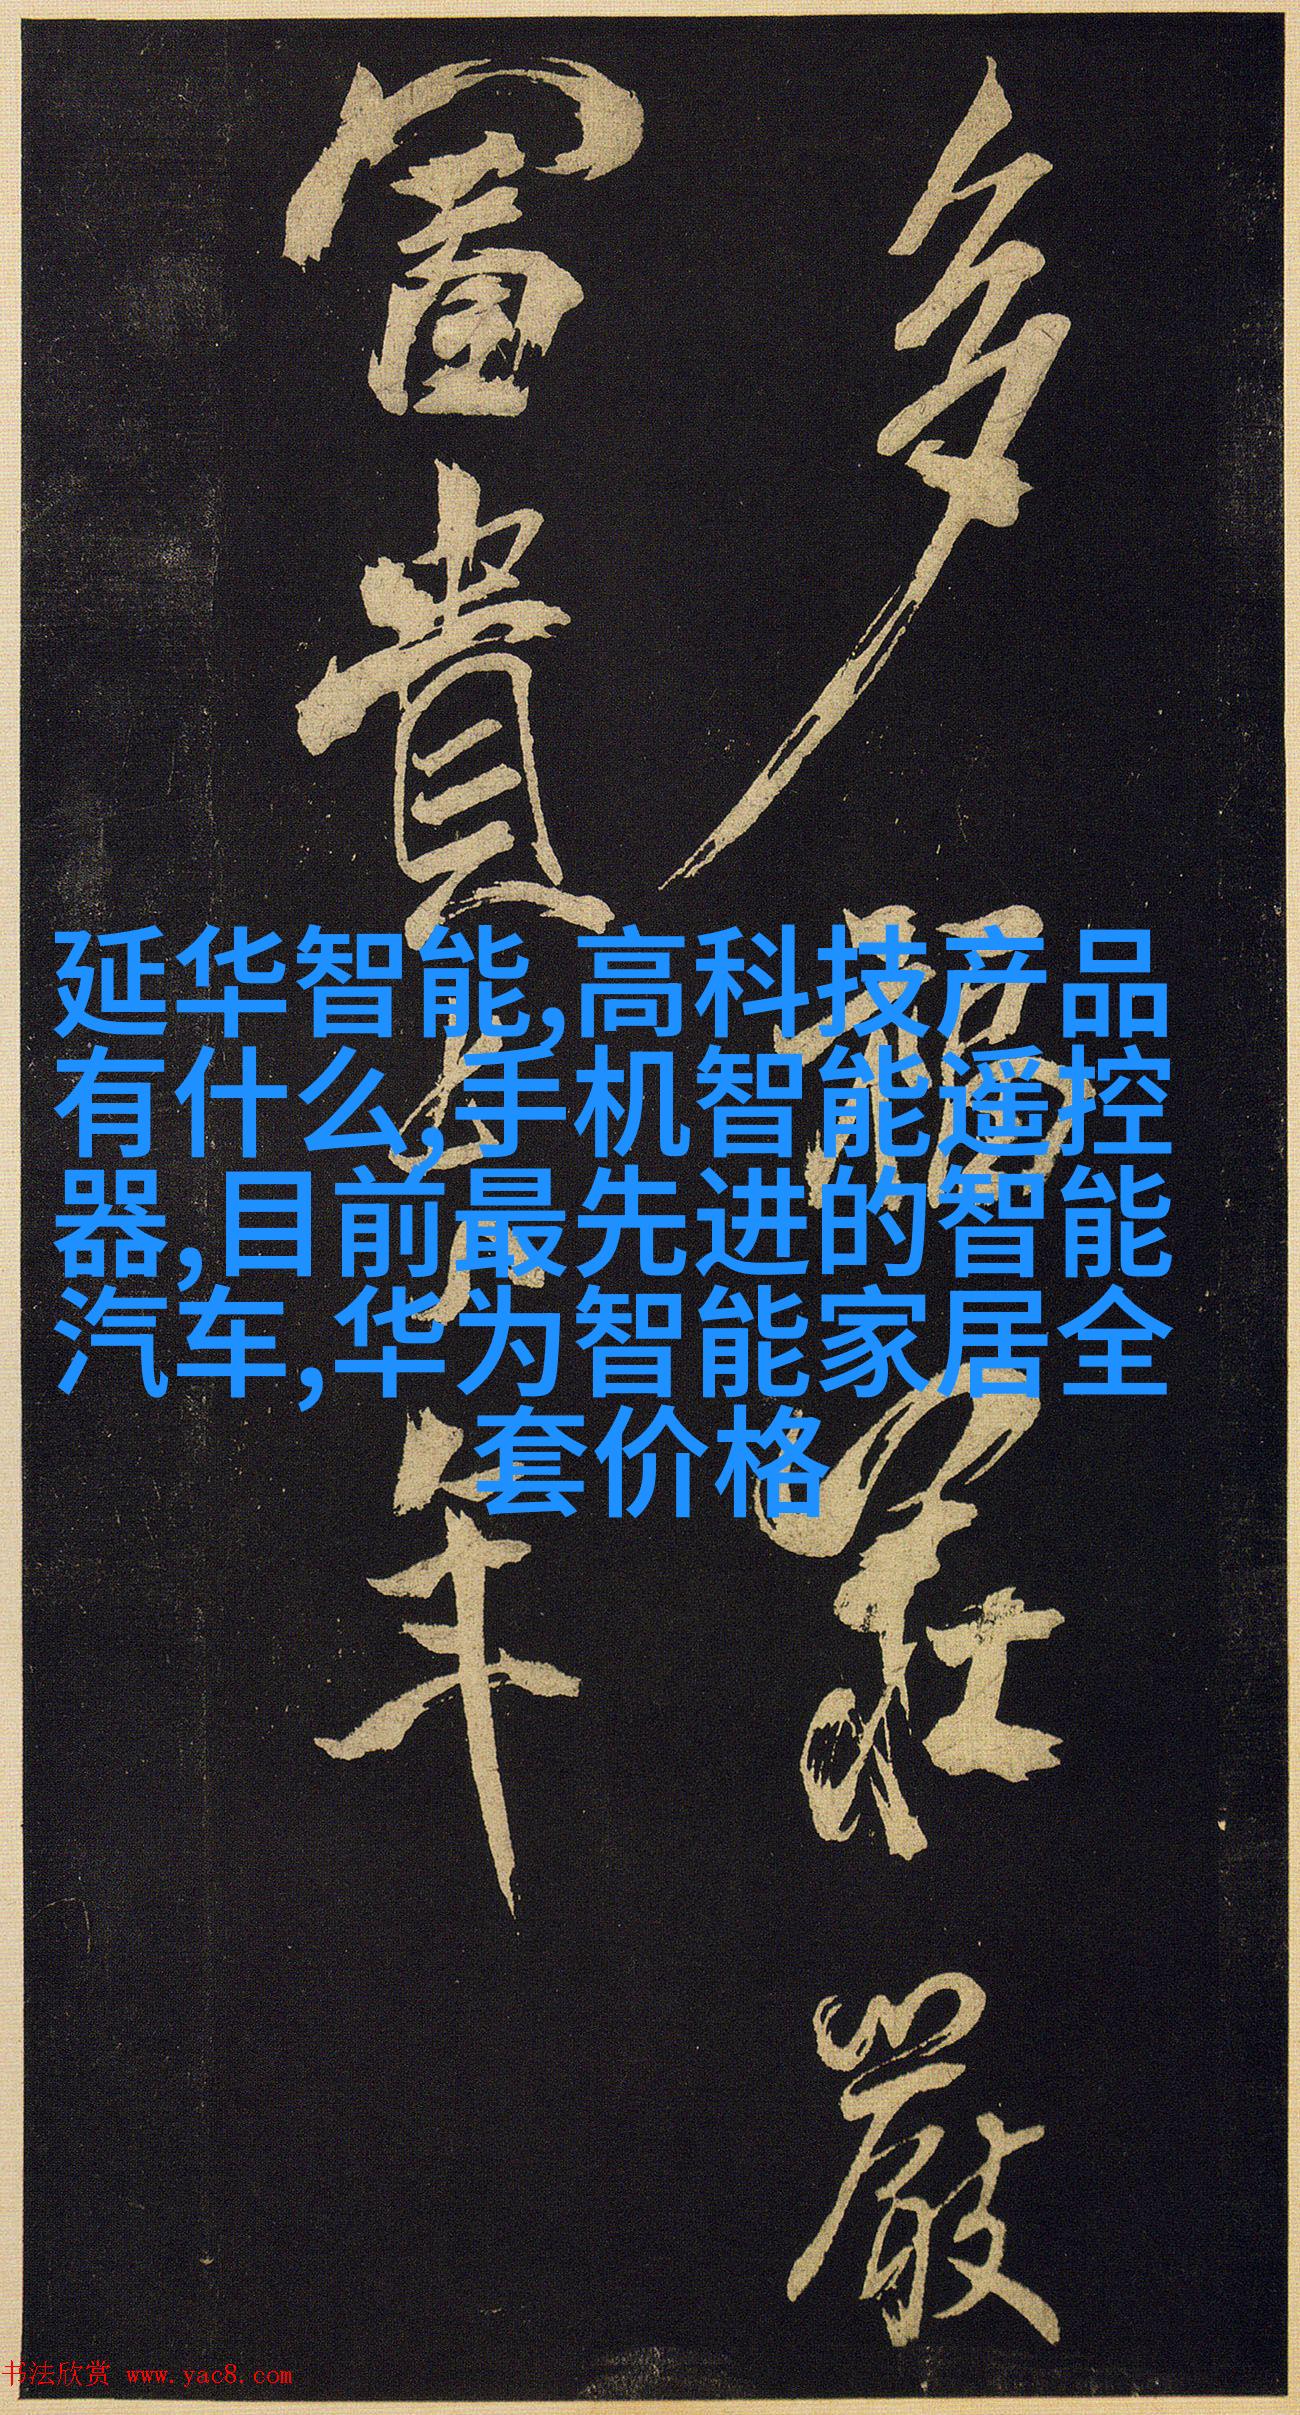 多福莊嚴
富貴
年
延华智能,高科技产品
有什么,手机智能遥控
器,目前最先进的智能
汽车,华为智能家居全
套价格
书法欣赏 www.yac8.com